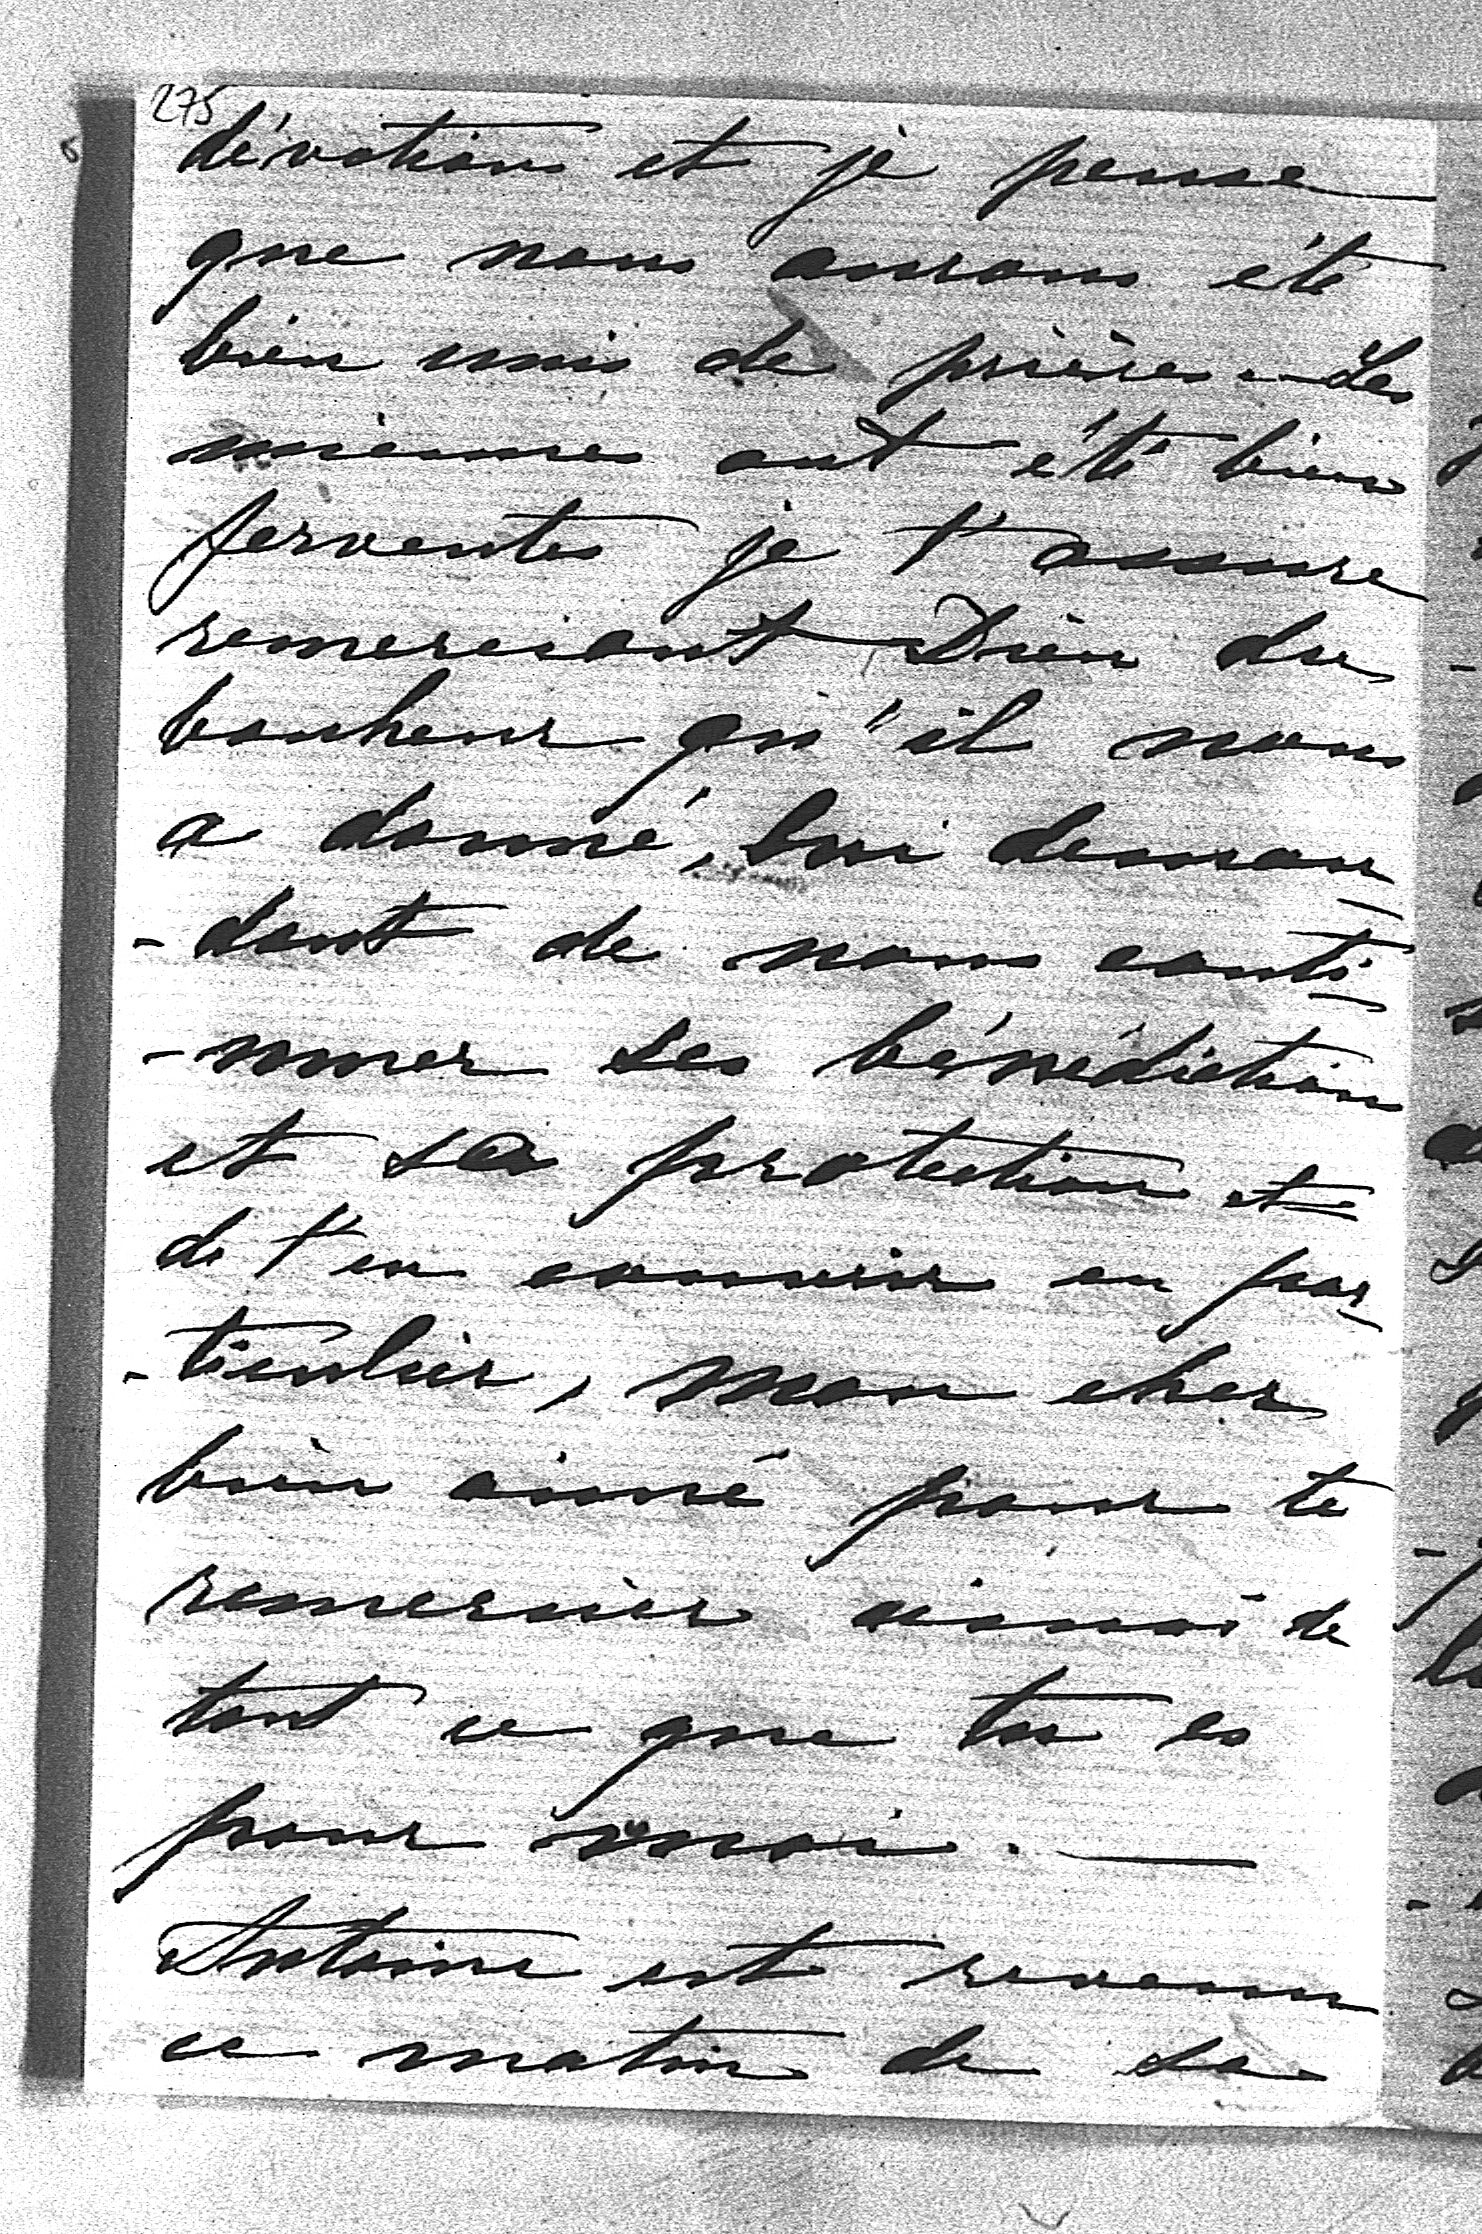 275
dévotions et je pense
que nous aurons été
bien unis de prières. — Les
miennes ont été bien
ferventes je t'assure
remerciant Dieu du
bonheur qu'il nous
a donné, lui deman
- dant de nous conti
- nuer ses bénédictions
et sa protection et
de t'en couvrir en par
- ticulier, mon cher
bien aimé pour te
remercier ainsi de
tout ce que tu es
pour moi. —
Antoine est revenu
ce matin de sa